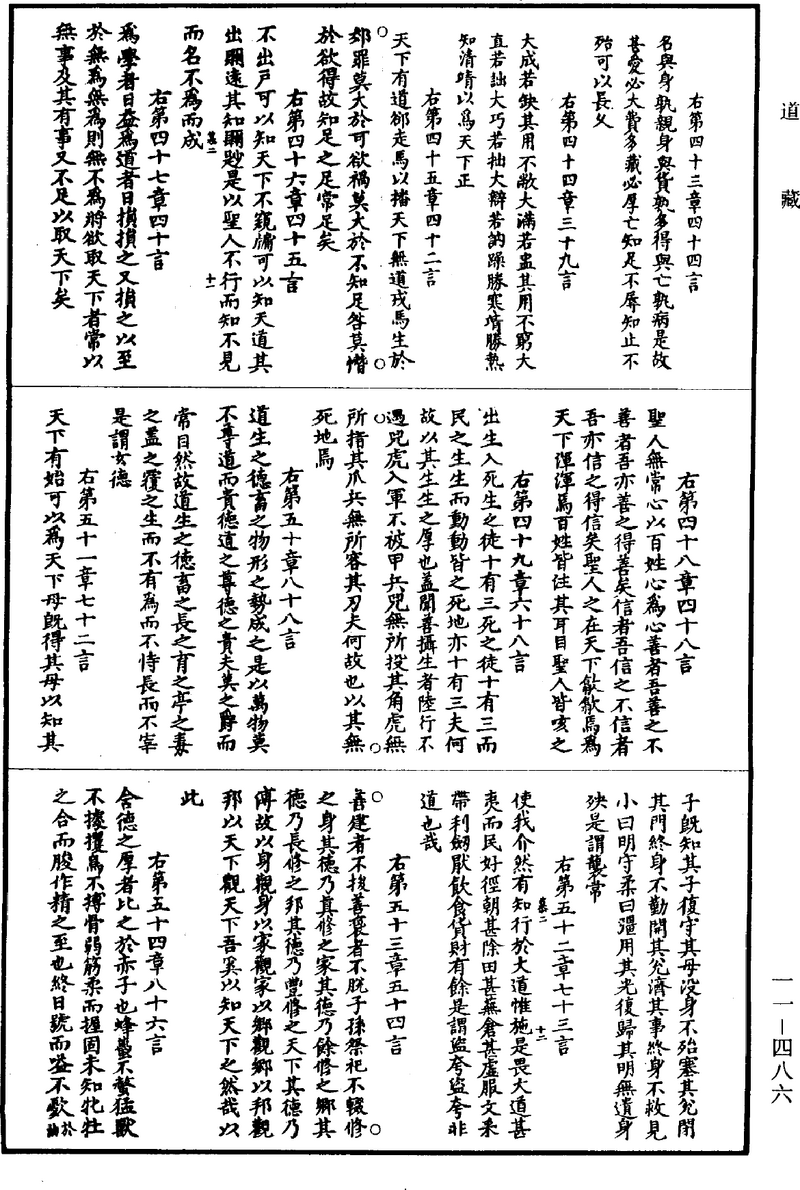 道藏
右第四十三章四十四言
名與身孰親身與貨孰多得與亡孰病是故
甚愛必大費多藏必厚亡知足不辱知止不
殆可以長久
右第四十四章三十九言
大成若缺其用不敝大滿若盅其用不窮大
直若詘大巧若拙大辯若訥躁勝寒靖勝熱
知清靖以爲天下正
右第四十五章四十二言
天下有道郤走馬以播天下無道戎馬生於
郊罪莫大於可欲禍莫大於不知足咎莫憯
於欲得故知足之足常足矣
右第四十六章四十五言
不出戸可以知天下不窺牖可以知天道其
出彌遠其知彌尟是以聖人不行而知不見
而名不爲而成
右第四十七章四十言
爲學者日益爲道者日損損之又損之以至
於無爲無爲則無不爲將欲取天下者常以
無事及其有事又不足以取天下矣
右第四十八章四十八言
聖人無常心以百姓心爲心善者吾善之不
善者吾亦善之得善矣信者吾信之不信者
吾亦信之得信矣聖人之在天下歙歙焉爲
天下渾渾焉百姓皆注其耳目聖人皆咳之
右第四十九章六十八言
出生入死生之徒十有三死之徒十有三而
民之生生而動動皆之死地亦十有三夫何
故以其生生之厚也蓋聞善攝生者陸行不
遇兕虎入軍不被甲兵兕無所投其角虎無
所措其爪兵無所容其刃夫何故也以其無
死地焉
右第五十章八十八言
道生之德畜之物形之勢成之是以萬物莫
不尊道而貴德道之尊德之貴夫莫之爵而
常自然故道生之德畜之長之育之亭之毒
之蓋之覆之生而不有爲而不恃長而不宰
是謂玄德
右第五十一章七十二言
天下有始可以爲天下母既得其母以知其
子既知其子復守其母没身不殆塞其兌閉
其門終身不勤開其兌濟其事終身不救見
小曰明守柔曰彊用其光復歸其明無遺身
殃是謂襲常
右第五十二章七十三言
使我介然有知行於大道惟施是畏大道甚
夷而民好徑朝甚除田甚蕪倉甚虚服文采
帶利劒厭飲食貨財有餘是謂盜夸盜夸非
道也哉
右第五十三章五十四言
善建者不拔善襃者不脱子孫祭祀不輟修
之身其德乃真修之家其德乃餘修之鄉其
德乃長修之邦其德乃豐修之天下其德乃
溥故以身觀身以家觀家以鄉觀鄉以邦觀
邦以天下觀天下吾奚以知天下之然哉以
此
右第五十四章八十六言
含德之厚者比之於赤子也蜂蠆不螫猛獸
不據攫鳥不搏骨弱筋柔而握固未知牝牡
之合而朘作精之至也終日號而嗌不歇
一一—四八六